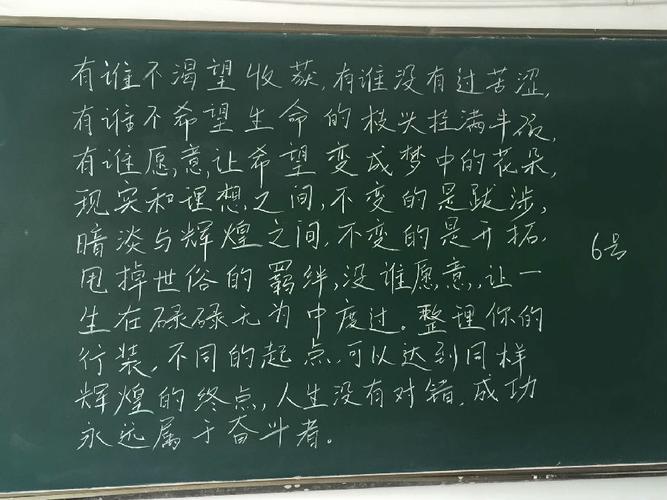 有谁不渴望收获,有谁没有过苦涩,
有谁不希望生命的枝头挂满丰硕,
有谁愿意,让希望变成梦中的花朵,
现实和理想之间,不变的是跋涉,
暗淡与辉煌之间,不变的是开拓.
甩掉世俗的羁绊,没谁愿意,让一
生在碌碌无为中度过。整理你的
行装,不同的起点,可以达到同样
辉煌的终点,人生没有对错,成功
永远属于奋斗者。
6号